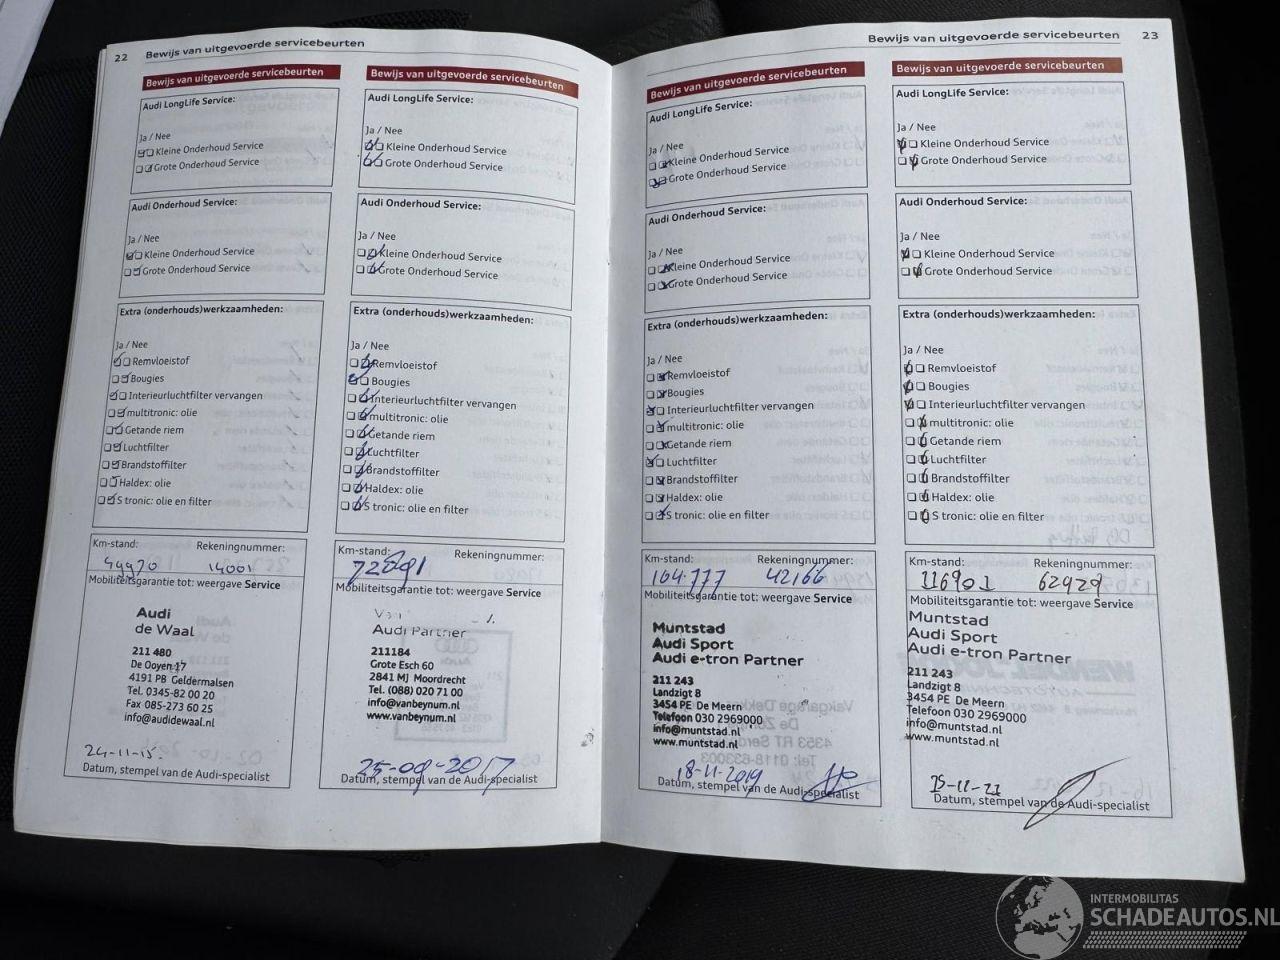 22 Bewijs van uitgevoerde servicebeurten
Bewijs van uitgevoerde servicebeurten
Audi LongLife Service:
Ja / Nee
Kleine Onderhoud Service
Grote Onderhoud Service
Audi Onderhoud Service:
Ja / Nee
Kleine Onderhoud Service
Grote Onderhoud Service
Extra (onderhouds)werkzaamheden:
Ja / Nee
Remvloeistof
Bougies
Interieurluchtfilter vervangen
multitronic: olie
Getande riem
Luchtfilter
Brandstoffilter
Haldex: olie
S tronic: olie en filter
Km-stand: Rekeningnummer:
14001
Mobiliteitsgarantie tot: weergave Service
Audi
de Waal
211 480
De Ooyen 17
4191 PB Geldermalsen
Tel. 0345-82 00 20
Fax 085-273 60 25
info@audidewaal.nl
24-11-15.
Datum, stempel van de Audi-specialist
Bewijs van uitgevoerde servicebeurten
Audi LongLife Service:
Ja / Nee
Kleine Onderhoud Service
Grote Onderhoud Service
Audi Onderhoud Service:
Ja / Nee
Kleine Onderhoud Service
Grote Onderhoud Service
Extra (onderhouds)werkzaamheden:
Ja / Nee
Remvloeistof
Bougies
Interieurluchtfilter vervangen
multitronic: olie
Getande riem
Luchtfilter
Brandstoffilter
Haldex: olie
S tronic: olie en filter
Km-stand: Rekeningnummer:
72091
Mobiliteitsgarantie tot: weergave Service
Audi Partner
211184
Grote Esch 60
2841 MJ Moordrecht
Tel. (088) 020 71 00
info@vanbeynum.nl
www.vanbeynum.nl
25-09-2017
Datum, stempel van de Audi-specialist
Bewijs van uitgevoerde servicebeurten 23
Bewijs van uitgevoerde servicebeurten
Audi LongLife Service:
Ja / Nee
Kleine Onderhoud Service
Grote Onderhoud Service
Audi Onderhoud Service:
Ja / Nee
Kleine Onderhoud Service
Grote Onderhoud Service
Extra (onderhouds)werkzaamheden:
Ja / Nee
Remvloeistof
Bougies
Interieurluchtfilter vervangen
multitronic: olie
Getande riem
Luchtfilter
Brandstoffilter
Haldex: olie
S tronic: olie en filter
Km-stand: Rekeningnummer:
104.777 42166
Mobiliteitsgarantie tot: weergave Service
Muntstad
Audi Sport
Audi e-tron Partner
211 243
Landzigt 8
3454 PE De Meern
Telefoon 030 2969000
info@muntstad.nl
www.muntstad.nl
18-11-2019
Datum, stempel van de Audi-specialist
Bewijs van uitgevoerde servicebeurten
Audi LongLife Service:
Ja / Nee
Kleine Onderhoud Service
Grote Onderhoud Service
Audi Onderhoud Service:
Ja / Nee
Kleine Onderhoud Service
Grote Onderhoud Service
Extra (onderhouds)werkzaamheden:
Ja / Nee
Remvloeistof
Bougies
Interieurluchtfilter vervangen
multitronic: olie
Getande riem
Luchtfilter
Brandstoffilter
Haldex: olie
S tronic: olie en filter
Km-stand: Rekeningnummer:
116901 62929
Mobiliteitsgarantie tot: weergave Service
Muntstad
Audi Sport
Audi e-tron Partner
211 243
Landzigt 8
3454 PE De Meern
Telefoon 030 2969000
info@muntstad.nl
www.muntstad.nl
Datum, stempel van de Audi-specialist
INTERMOBILITAS
SCHADEAUTOS.NL